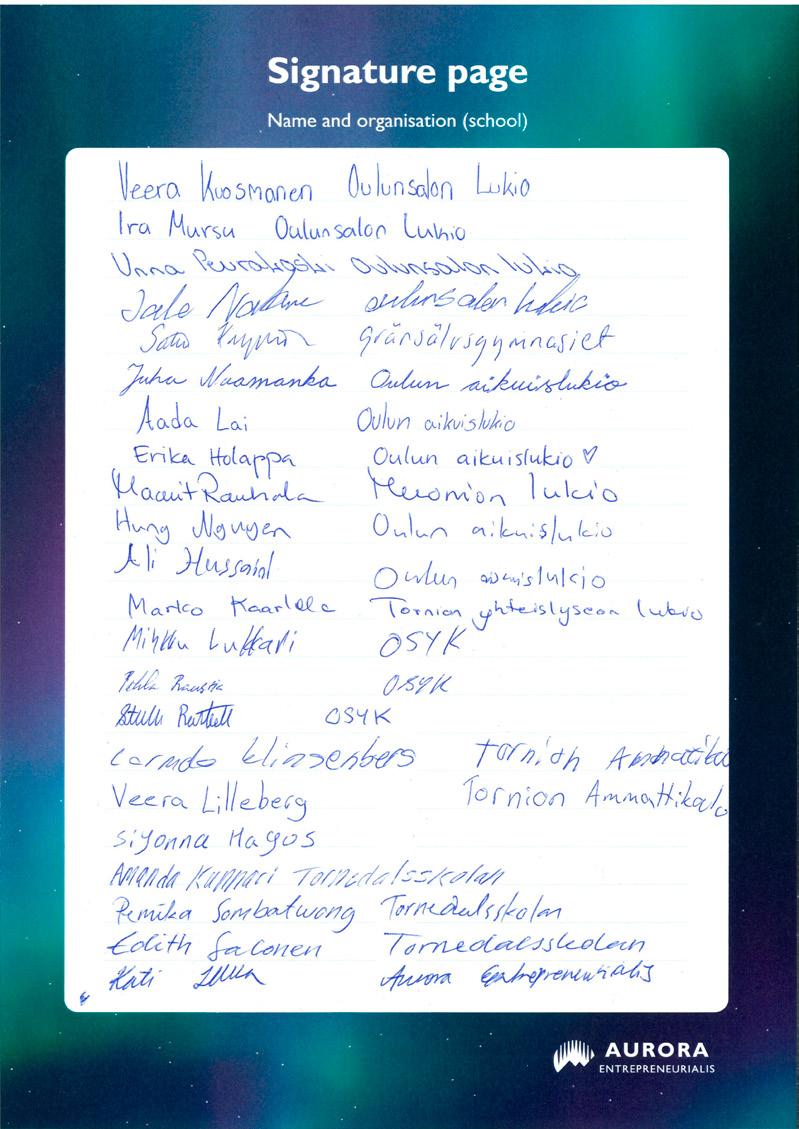 Signature page
Name and organisation (school)
Veera Kuosmanen Oulunsalon Lukio
Ira Mursu Oulunsalon Lukio
Unna Peurakoski Oulunsalon lukio
oulunsalon lukio
gränsälvsgymnasiet
Juha Naamanka Oulun aikuislukio
Aada Lai Oulun aikuislukio
Erika Holappa Oulun aikuislukio ♡
Maarit Rauhala Muonion lukio
Hung Nguyen Oulun aikuislukio
Ali Hussaini Oulun aikuislukio
Marko Kaarlela Tornion yhteislyseon lukio
Mikku Lukkari OSYK
OSYK
OSYK
Klingenberg Tornion Ammattikou
Veera Lilleberg Tornion Ammattikolo
Siyonna Hagos
Amanda Kumpari Tornedalsskolan
Pemika Sombatwong Tornedalsskolan
Edith Salonen Tornedalsskolan
Kati Aurora Entrepreneurialis
AURORA
ENTREPRENEURIALIS